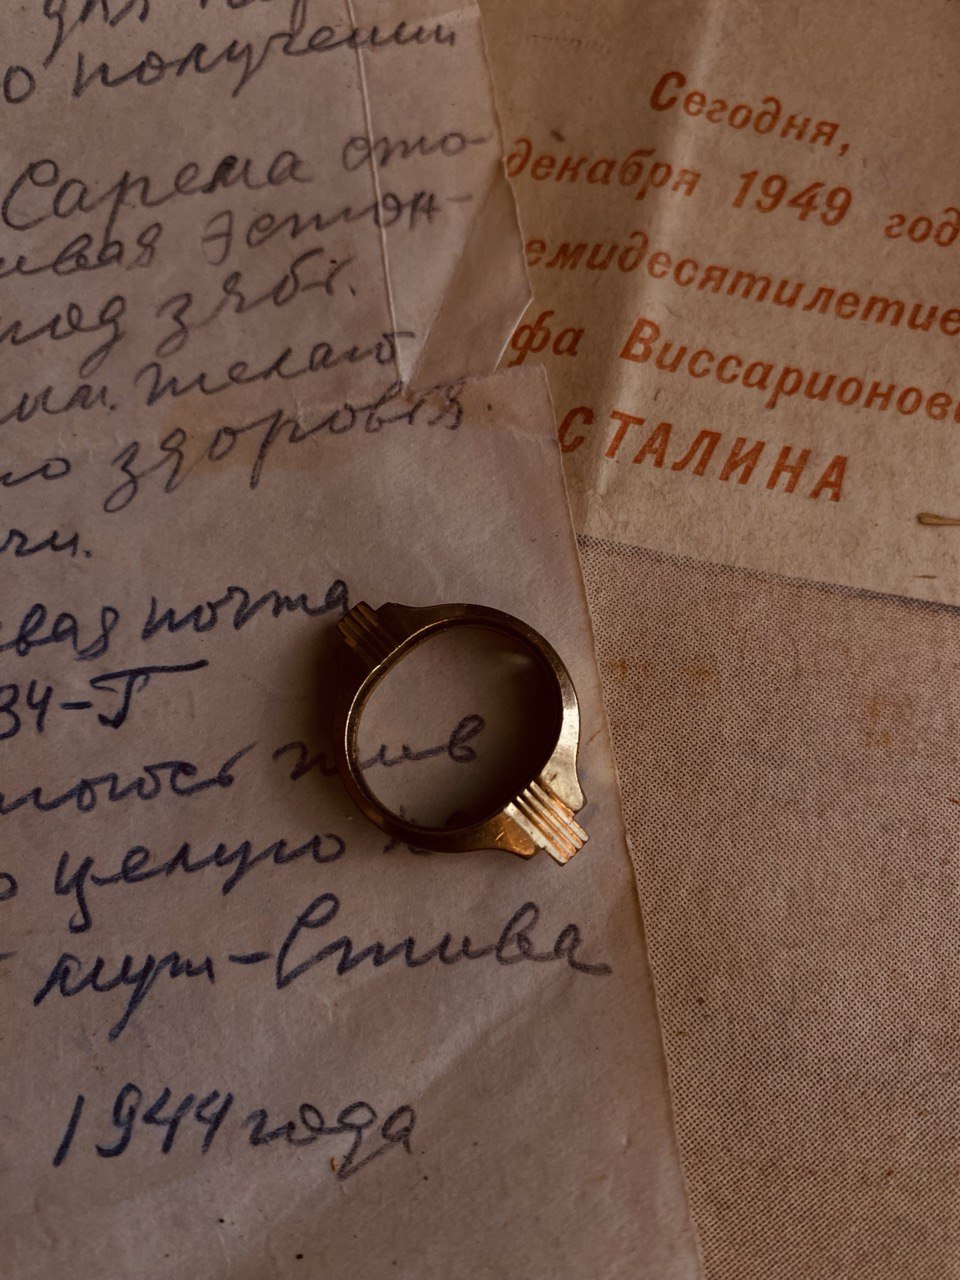 о получении
Сарема сто-
ивая Эстон-
под зябь.
желаю
здоровья
чи.
евая почта
34-Т
тоюсь жив
целую
муж-Стива
1944 года
Сегодня,
декабря 1949 год
емидесятилетие
фа Виссарионови
СТАЛИНА